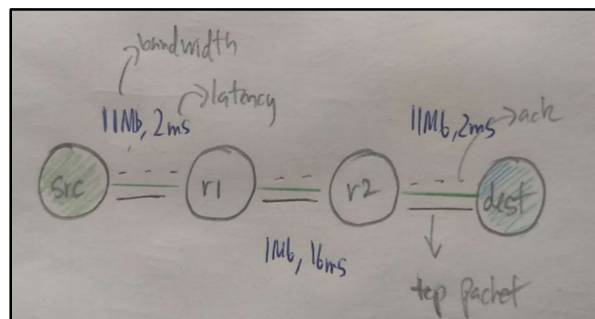 bandwidth
latency
11Mb, 2ms
11Mb, 2ms
ack
src
r1
r2
dest
1Mb, 16ms
tcp packet